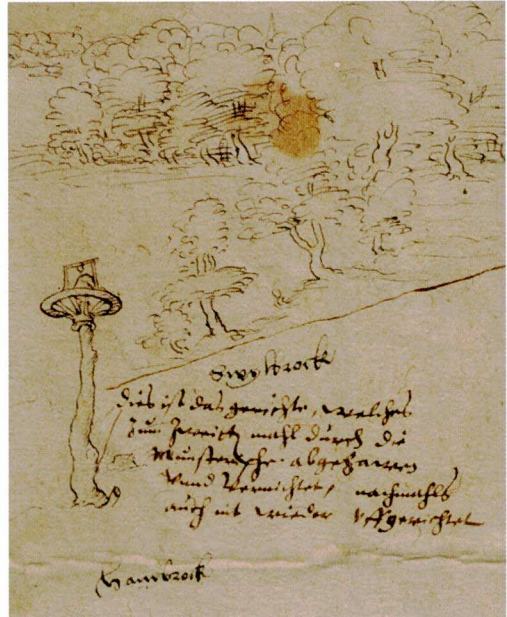 Swylbrock
Dies ist das gerichte, welches
Zum Zweiten mahl durch die
Munstersche abgehawen
Vnnd Vernichtet, nachmahls
auch nit wieder Vffgerichtet
Hambrock